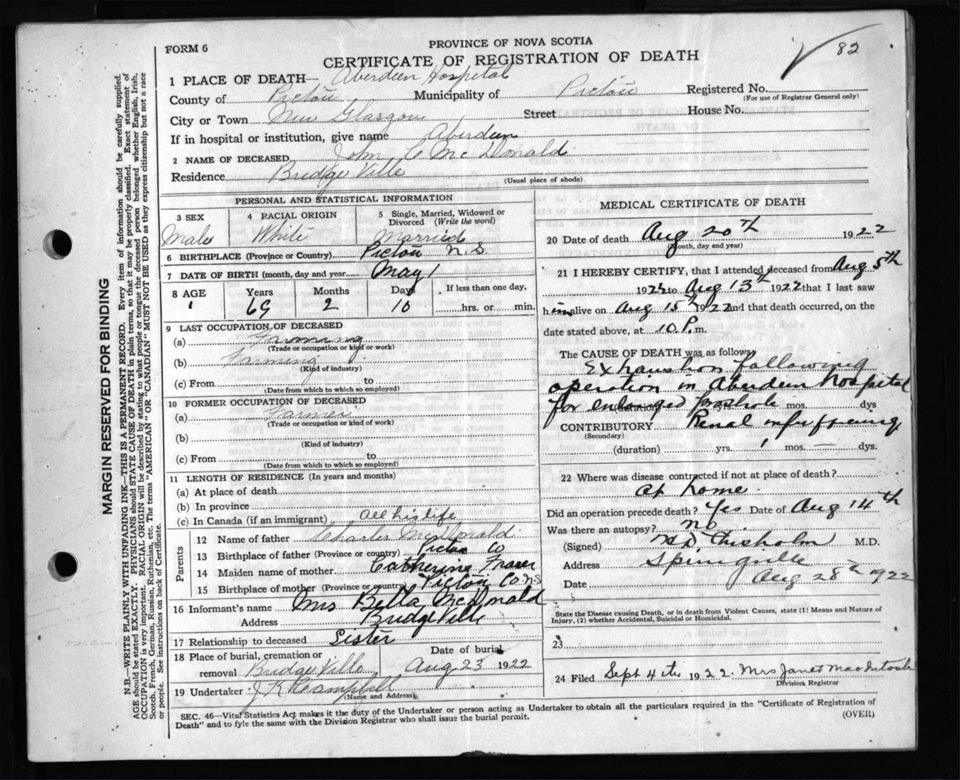 82
FORM 6
PROVINCE OF NOVA SCOTIA
CERTIFICATE OF REGISTRATION OF DEATH
1 PLACE OF DEATH— Aberdeen Hospital
County of Pictou Municipality of Pictou Registered No.
(For use of Registrar General only)
City or Town New Glasgow Street House No.
If in hospital or institution, give name Aberdeen
2 NAME OF DECEASED John C McDonald
Residence Bridge Ville
(Usual place of abode)
MARGIN RESERVED FOR BINDING
N.B.—WRITE PLAINLY WITH UNFADING INK—THIS IS A PERMANENT RECORD. Every item of information should be carefully supplied.
AGE should be stated EXACTLY. PHYSICIANS should STATE CAUSE OF DEATH in plain terms, so that it may be properly classified. Exact statement of
OCCUPATION is very important. RACIAL ORIGIN will be described by stating to what people or tongue the deceased person belonged whether English, Irish,
Scotch, French, German, Russian, Ruthenian, etc. The terms "AMERICAN" OR "CANADIAN" MUST NOT BE USED as they express citizenship but not a race
or people. See instructions on back of Certificate.
PERSONAL AND STATISTICAL INFORMATION
3 SEX 4 RACIAL ORIGIN 5 Single, Married, Widowed or
Divorced (Write the word)
Male White Married
6 BIRTHPLACE (Province or Country) Pictou N.S
7 DATE OF BIRTH (month, day and year) May 1
8 AGE Years Months Days If less than one day,
69 2 10 hrs. or min.
9 LAST OCCUPATION OF DECEASED
(a) Farming
(Trade or occupation or kind or work)
(b) Farming
(Kind of industry)
(c) From to
(Date from which to which so employed)
10 FORMER OCCUPATION OF DECEASED
(a) Farmer
(Trade or occupation or kind of work)
(b)
(Kind of industry)
(c) From to
(Date from which to which so employed)
11 LENGTH OF RESIDENCE (In years and months)
(a) At place of death
(b) In province
(c) In Canada (if an immigrant) all his life
Parents
12 Name of father Charles McDonald
13 Birthplace of father (Province or country) Pictou Co
14 Maiden name of mother Catherine Fraser
15 Birthplace of mother (Province or country) Pictou Co N.S
16 Informant's name Mrs Bella McDonald
Address Bridge Ville
17 Relationship to deceased Sister
18 Place of burial, cremation or Date of burial
removal Bridge Ville Aug 23 1922
19 Undertaker J R Campbell
(Name and Address)
MEDICAL CERTIFICATE OF DEATH
20 Date of death Aug 20th 1922
(Month, day and year)
21 I HEREBY CERTIFY, that I attended deceased from Aug 5th
1922 to Aug 13th 1922 that I last saw
him alive on Aug 15th 1922 and that death occurred, on
date stated above, at 10 P. m.
The CAUSE OF DEATH was as follows:
Exhaustion following
operation in Aberdeen Hospital
for enlarged mos. dys
CONTRIBUTORY Renal
(Secondary)
(duration) yrs. mos. dys.
22 Where was disease contracted if not at place of death?
At home
Did an operation precede death? Yes Date of Aug 14th
Was there an autopsy? No
(Signed) Chisholm M.D.
Address Springville
Date Aug 28th 1922
State the Disease causing Death, or in death from Violent Causes, state (1) Means and Nature of
Injury, (2) whether Accidental, Suicidal or Homicidal.
23
24 Filed Sept 4th 1922. Mrs Janet MacIntosh
Division Registrar
SEC. 46—Vital Statistics Act makes it the duty of the Undertaker or person acting as Undertaker to obtain all the particulars required in the "Certificate of Registration of
Death" and to fyle the same with the Division Registrar who shall issue the burial permit.
(OVER)